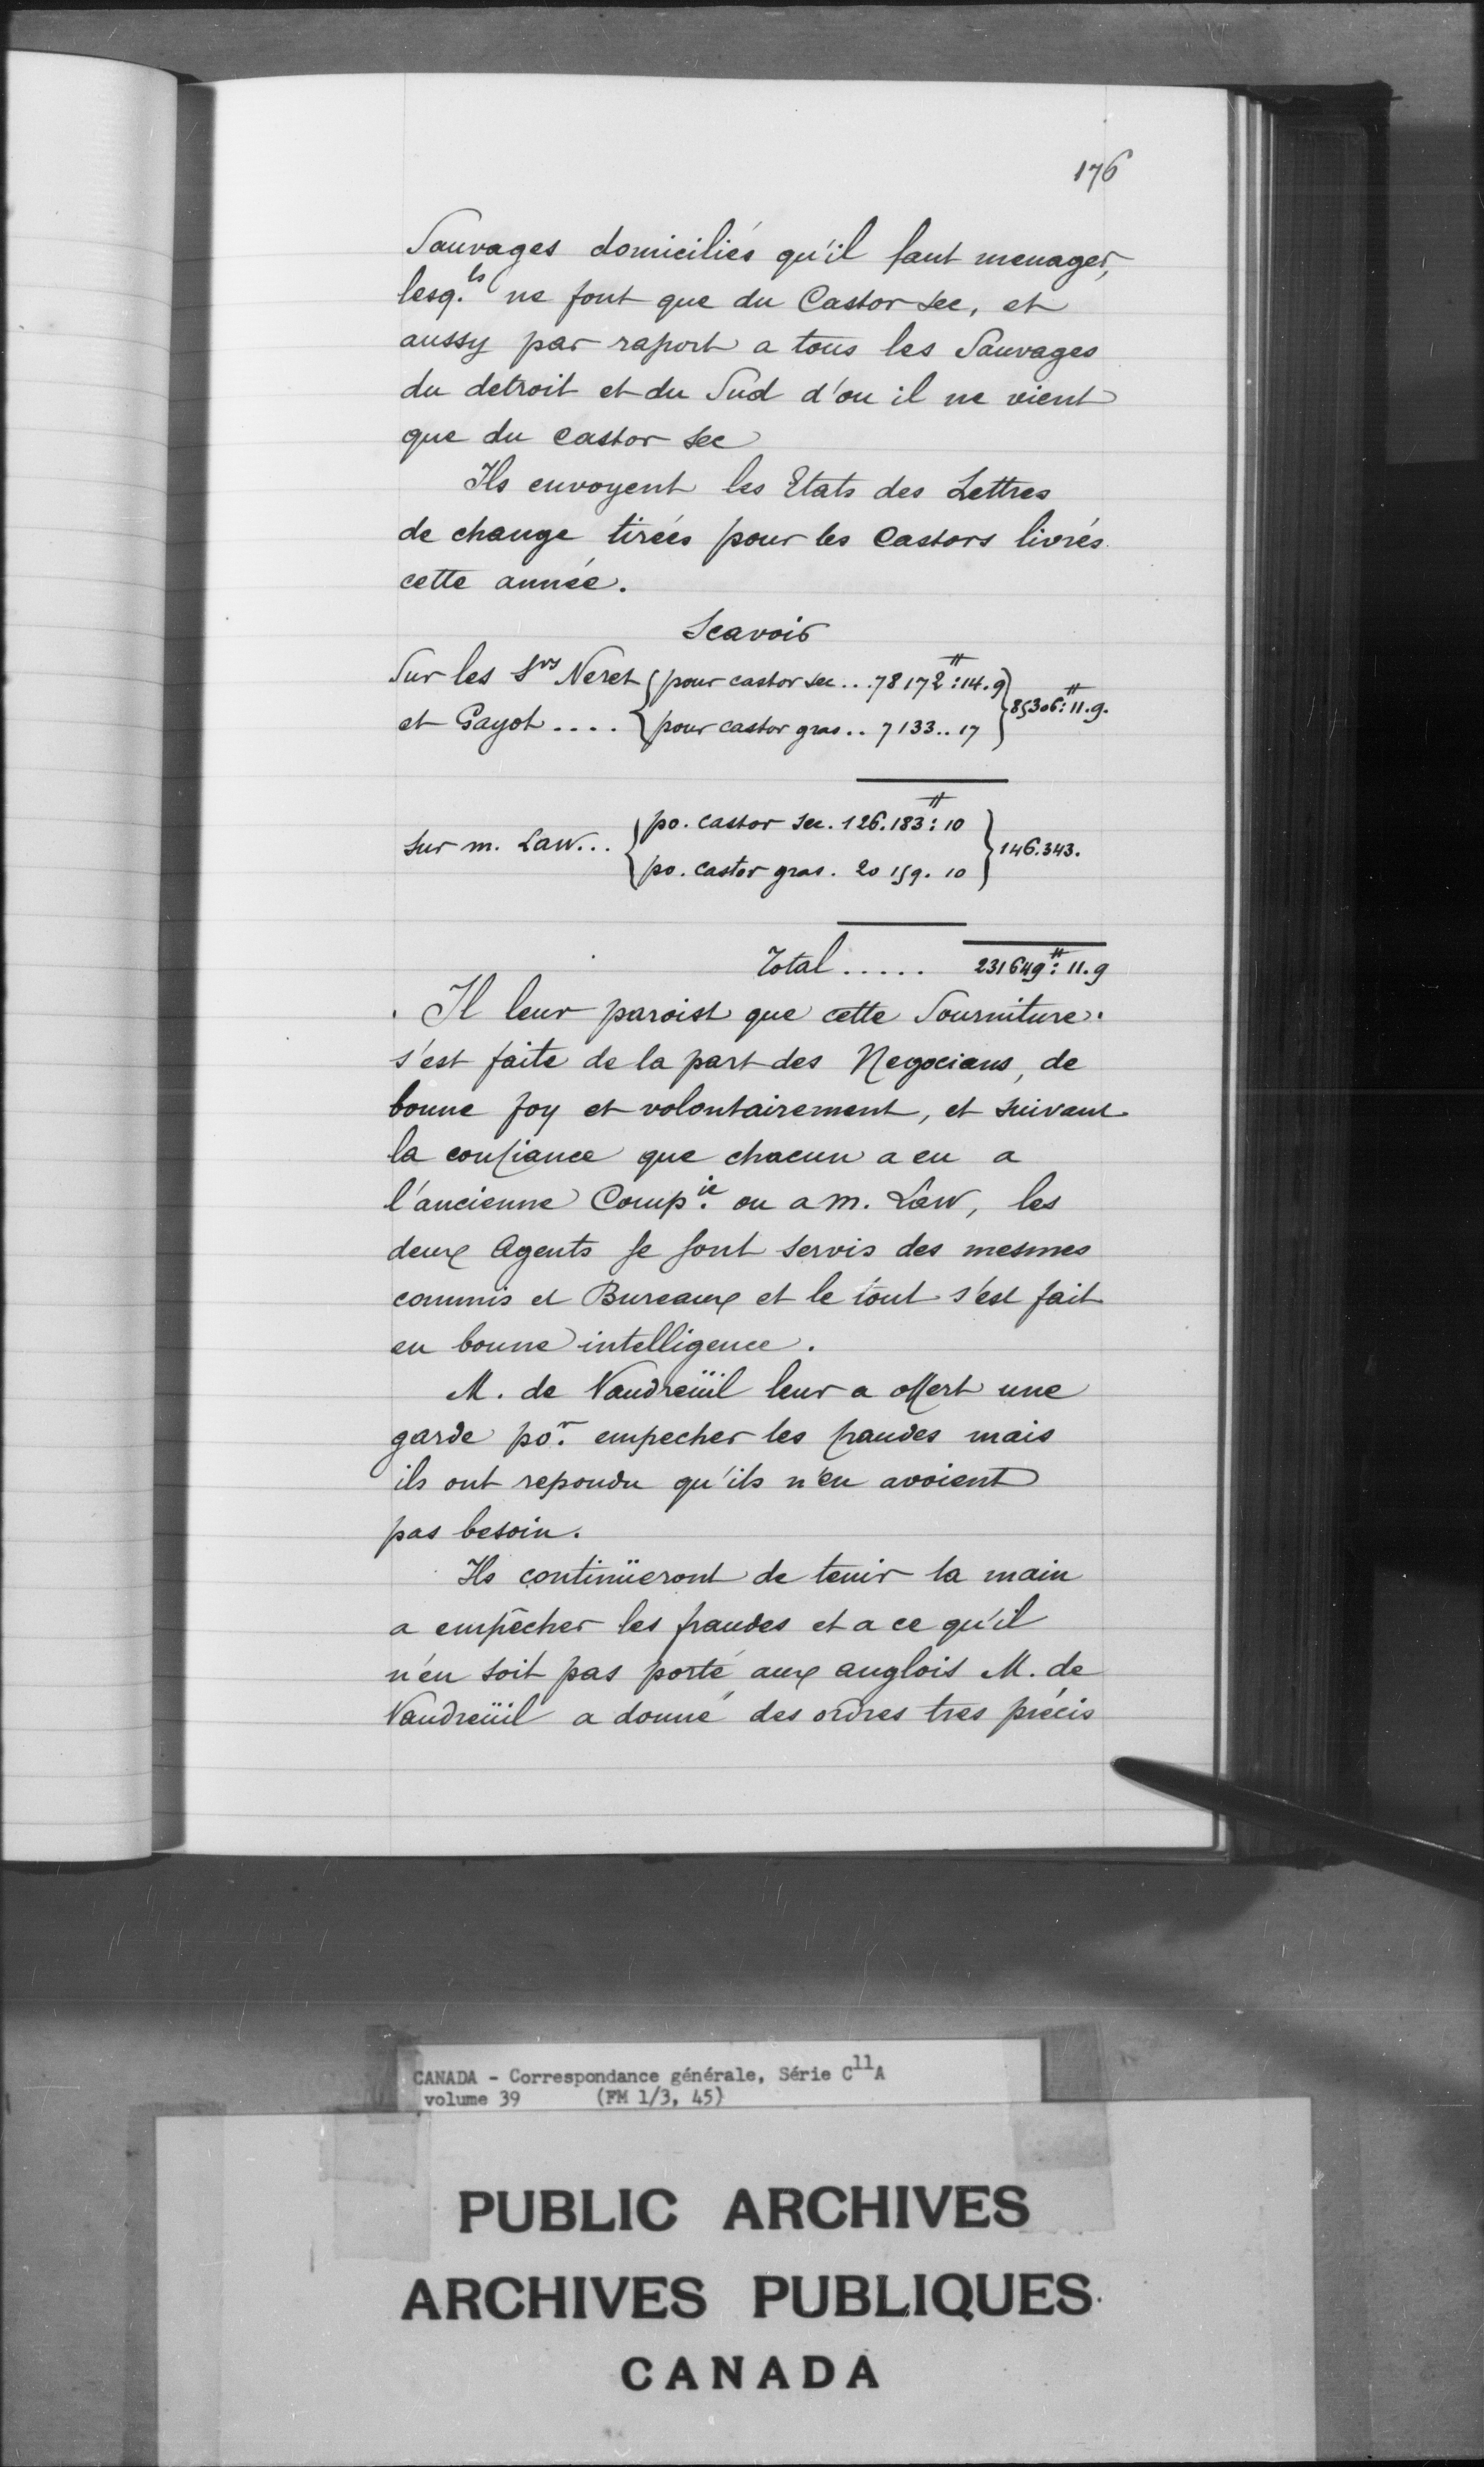 176
Sauvages domiciliés qu'il faut menager,
lesq.ls ne font que du Castor sec, et
aussy par raport a tous les Sauvages
du detroit et du Sud d'ou il ne vient
que du castor sec
Ils envoyent les Etats des Lettres
de change tirées pour les Castors livrés
cette année.
Scavoir
Sur les Srs Neret { pour castor sec... 78172# : 14. 9 }
et Gayot.... { pour castor gras.. 7133.. 17 } 85306# : 11. 9.
sur m. Law... { po. castor sec. 126.183# : 10 }
{ po. castor gras. 20159. 10 } 146.343.
Total..... 231649# : 11. 9
Il leur paroist que cette Fourniture
s'est faite de la part des Negocians, de
bonne foy et volontairement, et suivant
la confiance que chacun a eu a
l'ancienne Comp.ie ou a m. Law, les
deux Agents se sont servis des mesmes
commis et Bureaux et le tout s'est fait
en bonne intelligence.
M. de Vaudreüil leur a offert une
garde po.r empecher les fraudes mais
ils ont repondu qu'ils n'en avoient
pas besoin.
Ils continüeront de tenir la main
a empêcher les fraudes et a ce qu'il
n'en soit pas porté aux anglois M. de
Vaudreüil a donné des ordres tres précis
CANADA - Correspondance générale, Série C11A
volume 39 (FM 1/3, 45)
PUBLIC ARCHIVES
ARCHIVES PUBLIQUES
CANADA